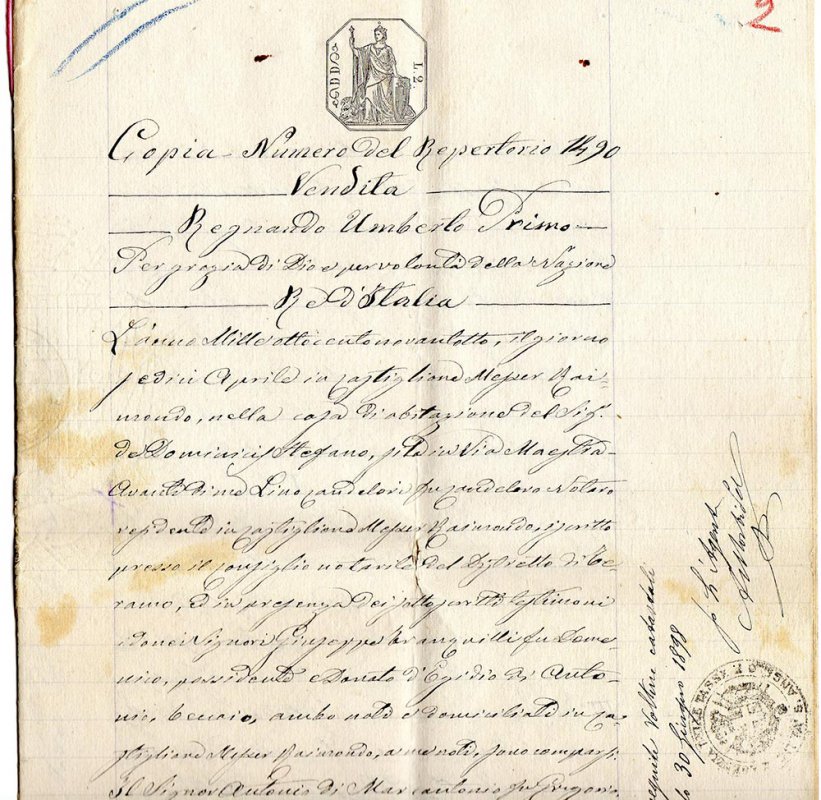 2
L. 2.
Copia - Numero del Repertorio 1490
Vendita
Regnando Umberto Primo
Per grazia di Dio e per volontà della Nazione
Re d'Italia
L'anno Mille ottocentonovantotto, il giorno
sedici Aprile in Castiglione Messer Rai=
mondo, nella casa di abitazione del Sigr.
de Dominicis Stefano, sita in Via Maestra
Avanti di me Lino Candelori fu Candeloro Notaro
residente in Castiglione Messer Raimondo, iscritto
presso il Consiglio notarile del Distretto di Te=
ramo, ed in presenza dei sottoscritti testimoni
idonei Signori Giuseppe Tranquilli fu Dome=
nico, possidente e Donato d'Egidio di Anto=
nio, beccaio, ambo noti e domiciliati in Ca=
stiglione Messer Raimondo, a me noti, sono comparsi
Il Signor Antonio di Marcantonio fu Gregorio
eseguite Volture catastali
lo 30 Giugno 1898
p. L'Agente